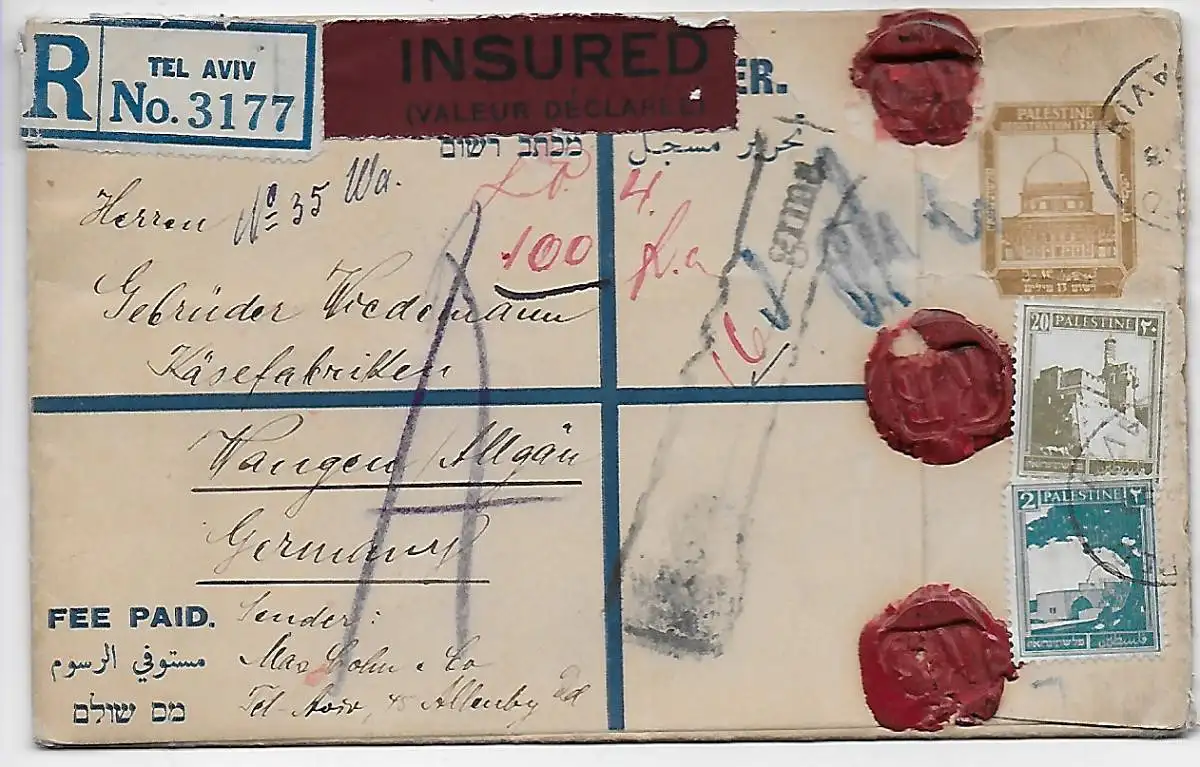 R
TEL AVIV
No. 3177
INSURED
(VALEUR DÉCLARÉE)
ER.
מכתב רשום
تحرير مسجل
Herren
No 35 Wa.
4.
100
16
grms
Gebrüder Wiedemann
Käsefabriken
Wangen / Allgäu
Germany
FEE PAID.
مستوفي الرسوم
מס שולם
Sender:
Max Cohn & Co
Tel-Aviv, 48 Allenby Rd
PALESTINE
REGISTRATION 13 M
רשום 13 מילים
20 PALESTINE ٢٠
2 PALESTINE ٢
فلسطين